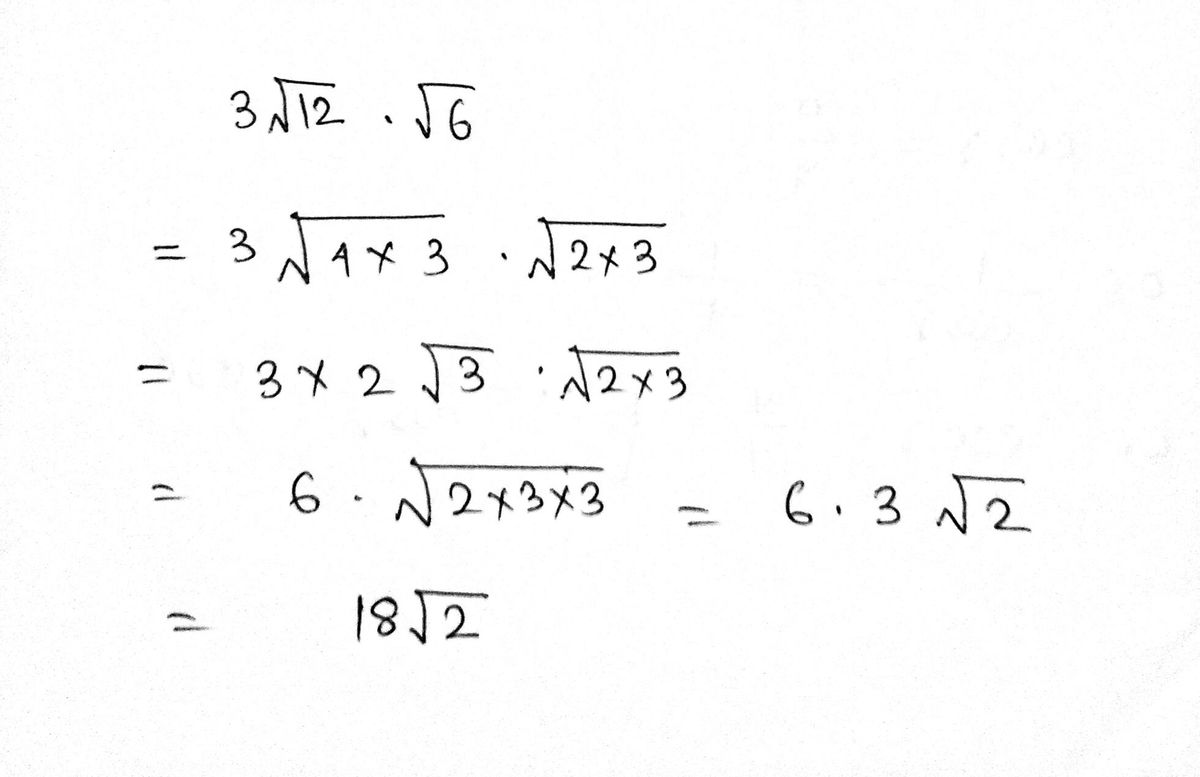 3√12 . √6
= 3 √4 × 3 . √2 × 3
= 3 × 2 √3 . √2 × 3
= 6 . √2 × 3 × 3 = 6 . 3 √2
= 18√2